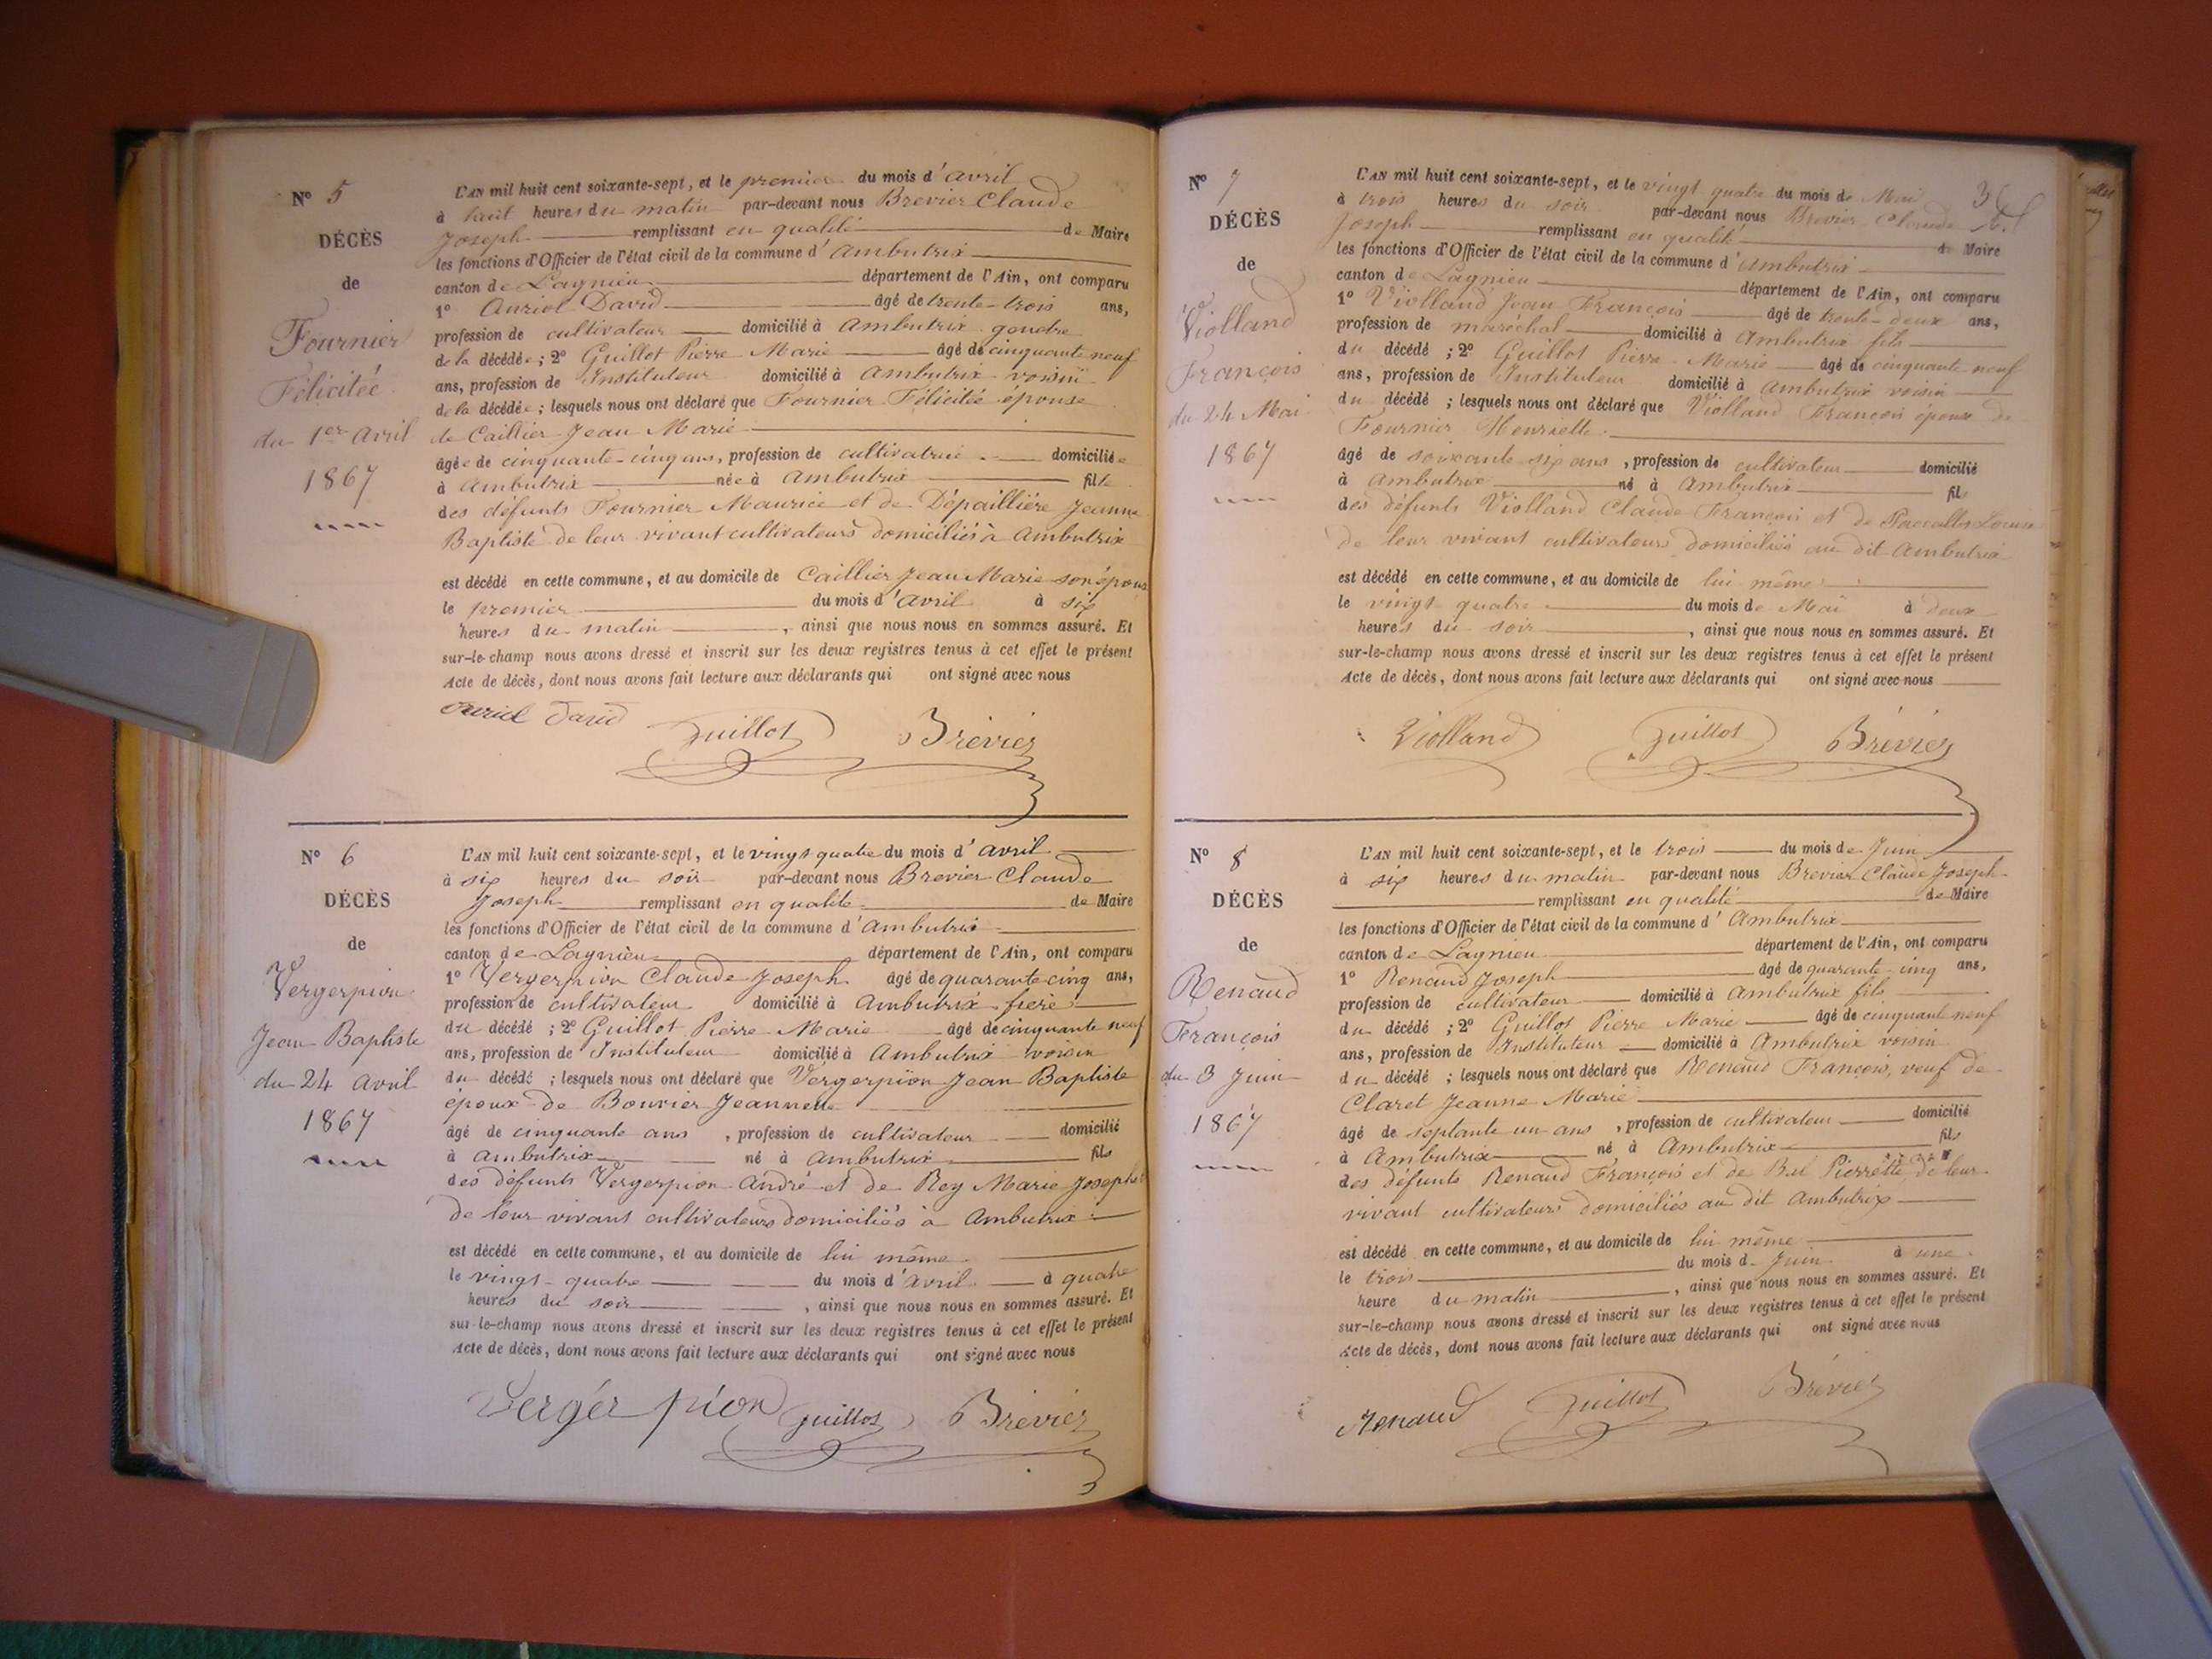 N° 5
DÉCÈS
de
Fournier
Félicitée
du 1er Avril
1867
L'AN mil huit cent soixante-sept, et le premier du mois d'avril
à huit heures du matin par-devant nous Brevier Claude
Joseph remplissant en qualité de Maire
les fonctions d'Officier de l'état civil de la commune d'Ambutrix
canton de Lagnieu département de l'Ain, ont comparu
1° Auriol David âgé de trente-trois ans,
profession de cultivateur domicilié à Ambutrix gendre
de la décédée; 2° Guillot Pierre Marie âgé de cinquante neuf
ans, profession de Instituteur domicilié à Ambutrix voisin
de la décédée; lesquels nous ont déclaré que Fournier Félicitée épouse
de Caillier Jean Marie
âgée de cinquante-cinq ans, profession de cultivatrice domiciliée
à Ambutrix née à Ambutrix fille
des défunts Fournier Maurice et de Dépaillière Jeanne
Baptiste de leur vivant cultivateurs domiciliés à Ambutrix
est décédé en cette commune, et au domicile de Caillier Jean Marie son époux
le premier du mois d'avril à six
heures du matin, ainsi que nous nous en sommes assuré. Et
sur-le-champ nous avons dressé et inscrit sur les deux registres tenus à cet effet le présent
Acte de décès, dont nous avons fait lecture aux déclarants qui ont signé avec nous
auriol david Guillot Brévier
N° 6
DÉCÈS
de
Vergerpion
Jean Baptiste
du 24 avril
1867
L'AN mil huit cent soixante-sept, et le vingt quatre du mois d'avril
à six heures du soir par-devant nous Brevier Claude
Joseph remplissant en qualité de Maire
les fonctions d'Officier de l'état civil de la commune d'Ambutrix
canton de Lagnieu département de l'Ain, ont comparu
1° Vergerpion Claude Joseph âgé de quarante cinq ans,
profession de cultivateur domicilié à Ambutrix frère
du décédé; 2° Guillot Pierre Marie âgé de cinquante neuf
ans, profession de Instituteur domicilié à Ambutrix voisin
du décédé; lesquels nous ont déclaré que Vergerpion Jean Baptiste
époux de Bouvier Jeannette
âgé de cinquante ans, profession de cultivateur domicilié
à Ambutrix né à Ambutrix fils
des défunts Vergerpion André et de Rey Marie Josephe
de leur vivant cultivateurs domiciliés à Ambutrix
est décédé en cette commune, et au domicile de lui même
le vingt-quatre du mois d'avril à quatre
heures du soir, ainsi que nous nous en sommes assuré. Et
sur-le-champ nous avons dressé et inscrit sur les deux registres tenus à cet effet le présent
Acte de décès, dont nous avons fait lecture aux déclarants qui ont signé avec nous
Vergér pion Guillot Brévier
N° 7
DÉCÈS
de
Violland
François
du 24 Mai
1867
L'AN mil huit cent soixante-sept, et le vingt quatre du mois de Mai
à trois heures du soir par-devant nous Brevier Claude
Joseph remplissant en qualité de Maire
les fonctions d'Officier de l'état civil de la commune d'Ambutrix
canton de Lagnieu département de l'Ain, ont comparu
1° Violland Jean François âgé de trente-deux ans,
profession de maréchal domicilié à Ambutrix fils
du décédé; 2° Guillot Pierre Marie âgé de cinquante neuf
ans, profession de Instituteur domicilié à Ambutrix voisin
du décédé; lesquels nous ont déclaré que Violland François époux de
Fournier Henriette
âgé de soixante six ans, profession de cultivateur domicilié
à Ambutrix né à Ambutrix fils
des défunts Violland Claude François et de Louise
de leur vivant cultivateurs domiciliés au dit Ambutrix
est décédé en cette commune, et au domicile de lui même
le vingt quatre du mois de Mai à deux
heures du soir, ainsi que nous nous en sommes assuré. Et
sur-le-champ nous avons dressé et inscrit sur les deux registres tenus à cet effet le présent
Acte de décès, dont nous avons fait lecture aux déclarants qui ont signé avec nous
Violland Guillot Brévier
N° 8
DÉCÈS
de
Renaud
François
du 3 Juin
1867
L'AN mil huit cent soixante-sept, et le trois du mois de Juin
à six heures du matin par-devant nous Brevier Claude Joseph
remplissant en qualité de Maire
les fonctions d'Officier de l'état civil de la commune d'Ambutrix
canton de Lagnieu département de l'Ain, ont comparu
1° Renaud Joseph âgé de quarante-cinq ans,
profession de cultivateur domicilié à Ambutrix fils
du décédé; 2° Guillot Pierre Marie âgé de cinquante neuf
ans, profession de Instituteur domicilié à Ambutrix voisin
du décédé; lesquels nous ont déclaré que Renaud François, veuf de
Claret Jeanne Marie
âgé de septante un ans, profession de cultivateur domicilié
à Ambutrix né à Ambutrix fils
des défunts Renaud François et de Pierrette de leur
vivant cultivateurs domiciliés au dit Ambutrix
est décédé en cette commune, et au domicile de lui même
le trois du mois d. Juin à une
heure du matin, ainsi que nous nous en sommes assuré. Et
sur-le-champ nous avons dressé et inscrit sur les deux registres tenus à cet effet le présent
Acte de décès, dont nous avons fait lecture aux déclarants qui ont signé avec nous
Renaud Guillot Brévier